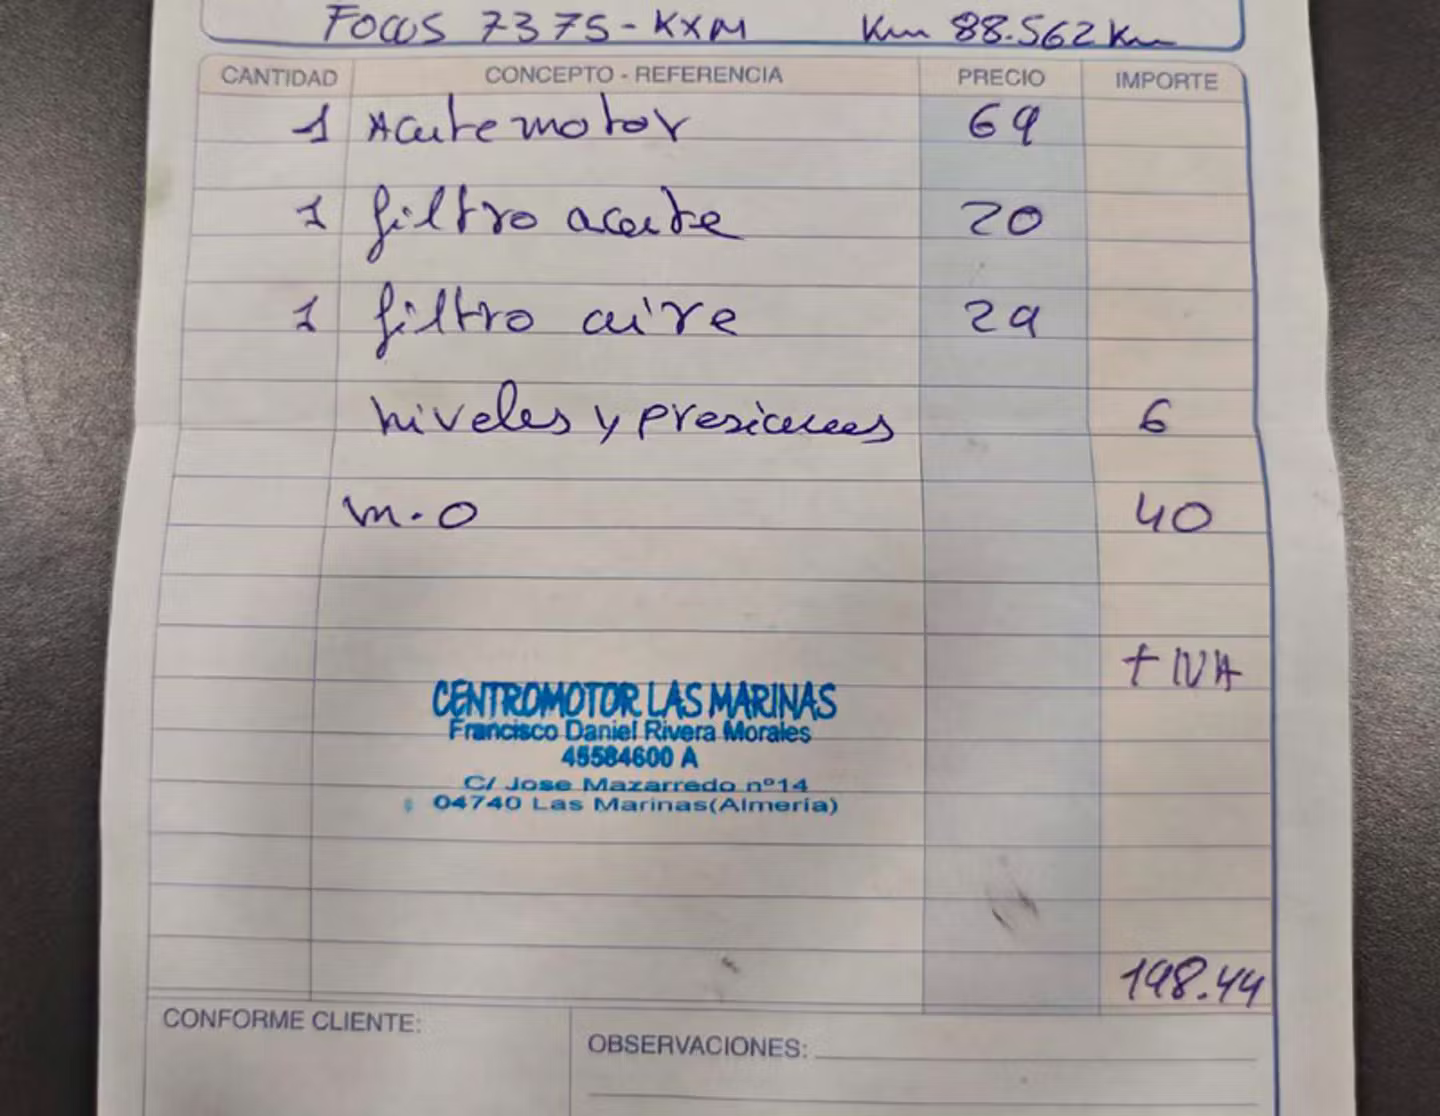 Focus 7375-KXM Km 88.562 Km
CANTIDAD CONCEPTO - REFERENCIA PRECIO IMPORTE
1 Aceite motor 69
1 filtro aceite 20
1 filtro aire 29
niveles y presiones 6
m.o 40
+ IVA
CENTROMOTOR LAS MARINAS
Francisco Daniel Rivera Morales
45584600 A
C/ Jose Mazarredo nº14
04740 Las Marinas(Almería)
198.44
CONFORME CLIENTE:
OBSERVACIONES: